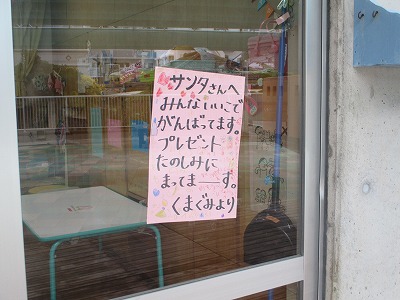 サンタさんへ
みんないいこで
がんばってます。
プレゼント
たのしみに
まってまーす。
くまぐみより